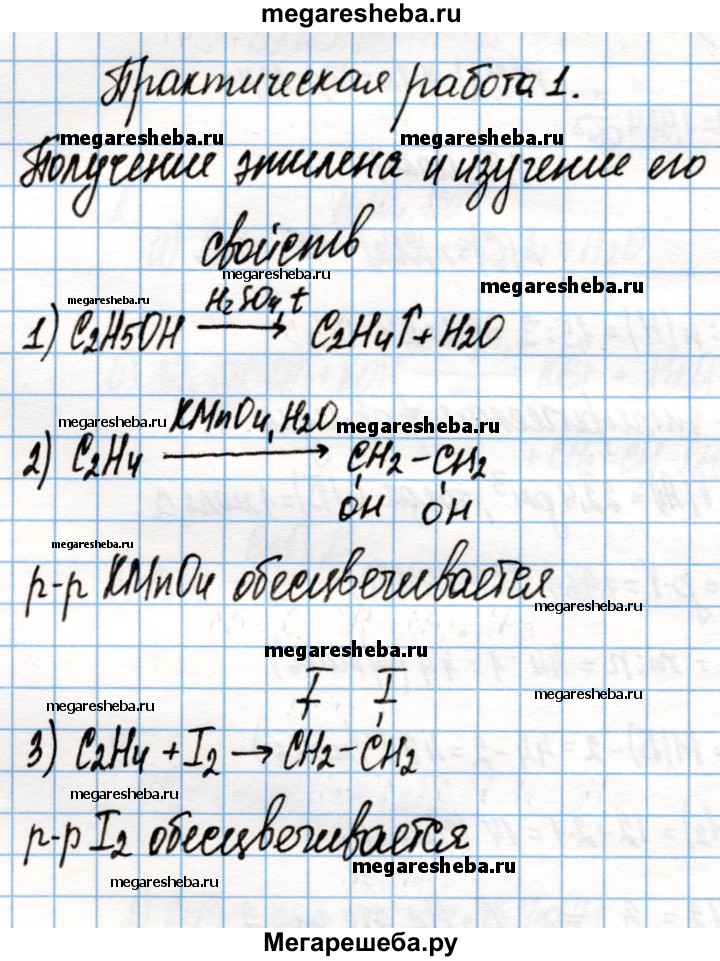 megaresheba.ru
Практическая работа 1.
megaresheba.ru megaresheba.ru
Получение этилена и изучение его
свойств
megaresheba.ru
megaresheba.ru
megaresheba.ru
H2SO4, t
1) C2H5OH → C2H4↑ + H2O
megaresheba.ru
KMnO4, H2O
megaresheba.ru
2) C2H4 → CH2–CH2
OH OH
megaresheba.ru
р-р KMnO4 обесцвечивается
megaresheba.ru
megaresheba.ru
I I
megaresheba.ru
megaresheba.ru
3) C2H4 + I2 → CH2–CH2
megaresheba.ru
р-р I2 обесцвечивается
megaresheba.ru
megaresheba.ru
Мегарешеба.ру